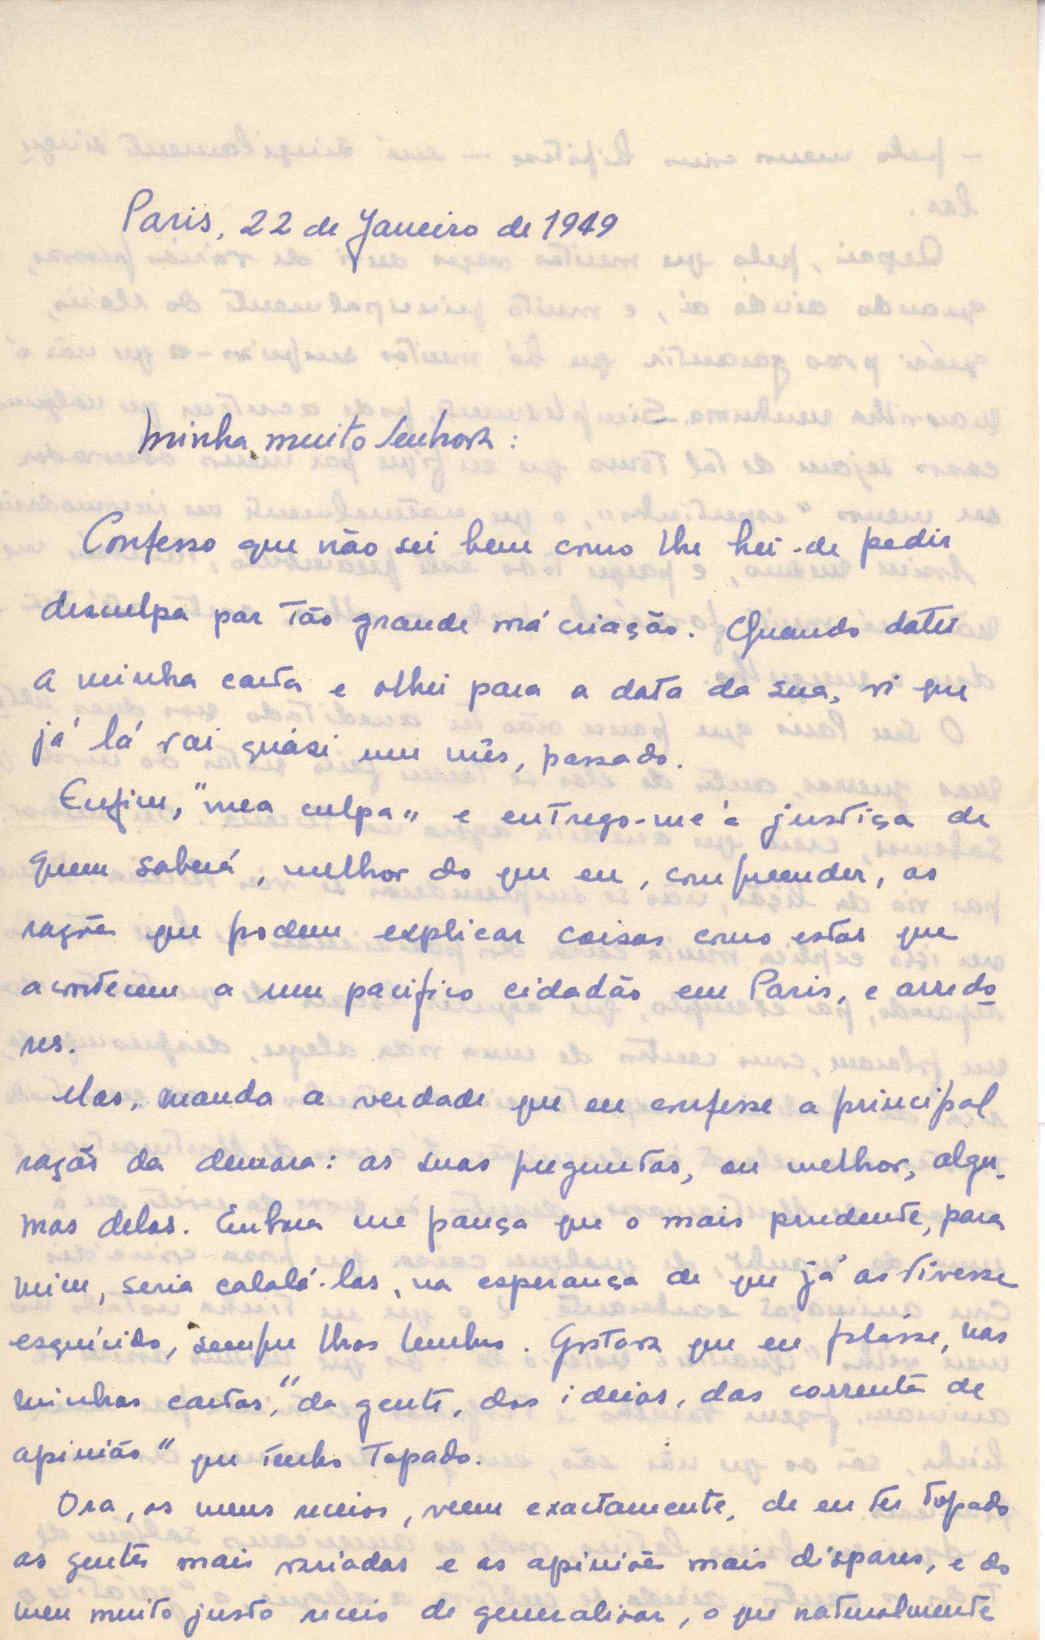 Paris, 22 de Janeiro de 1949
Minha muito Senhora:
Confesso que não sei bem como lhe hei-de pedir
desculpa por tão grande má criação. Quando datei
a minha carta e olhei para a data da sua, vi que
já lá vai quási um mês, passado.
Enfim, "mea culpa" e entrego-me à justiça de
quem saberá, melhor do que eu, compreender, as
razões que podem explicar coisas como estas que
acontecem a um pacifico cidadão em Paris, e arredo
res.
Mas, manda a verdade que eu confesse a principal
razão da demora: as suas preguntas, ou melhor, algu-
mas delas. Embora me pareça que o mais prudente, para
mim, seria calá-las, na esperança de que já as tivesse
esquécido, sempre lhas lembro. Gostava que eu falásse, nas
minhas cartas, "da gente, das ideias, das correntes de
opinião" que tenho topado.
Ora, os meus receios, veem exactamente, de eu ter topado
as gentes mais variadas e as opiniões mais dispares, e do
meu muito justo receio de generalizar, o que naturalmente